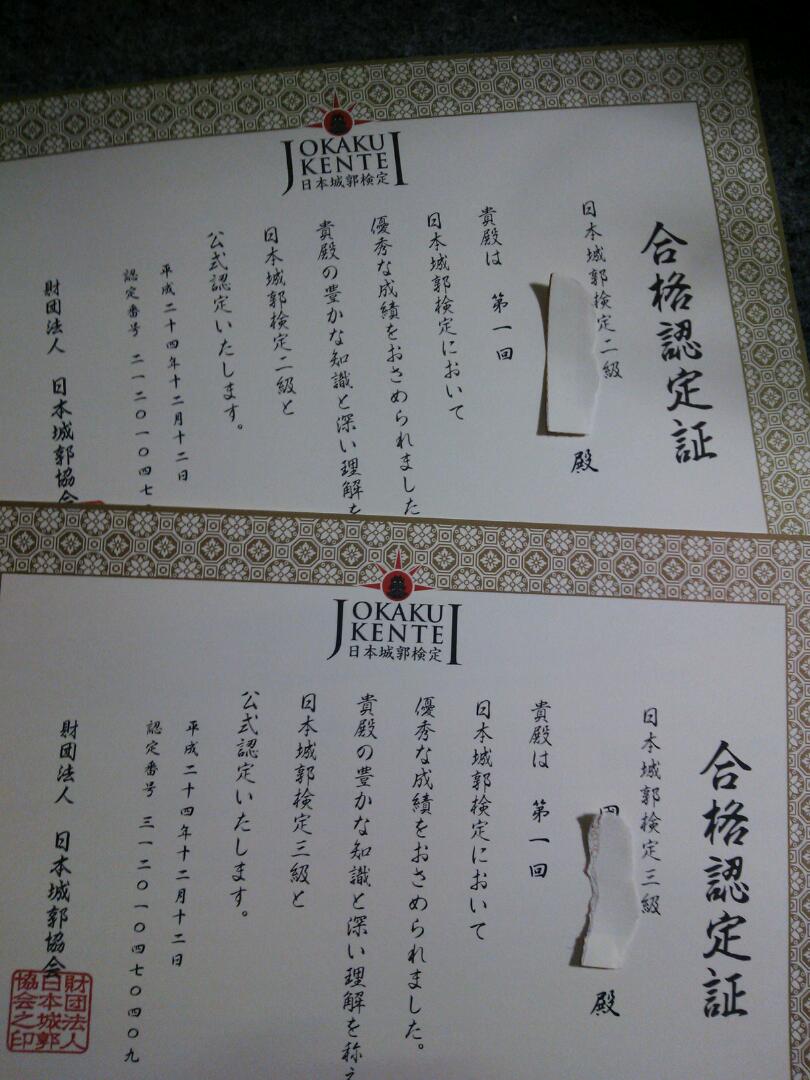 JOKAKU
KENTEI
日本城郭検定
合格認定証
日本城郭検定二級
殿
貴殿は 第一回
日本城郭検定において
優秀な成績をおさめられました
貴殿の豊かな知識と深い理解を
日本城郭検定二級と
公式認定いたします。
平成二十四年十二月十二日
認定番号 二一二〇一〇四七
財団法人 日本城郭協会
JOKAKU
KENTEI
日本城郭検定
合格認定証
日本城郭検定三級
殿
貴殿は 第一回
日本城郭検定において
優秀な成績をおさめられました。
貴殿の豊かな知識と深い理解を称え
日本城郭検定三級と
公式認定いたします。
平成二十四年十二月十二日
認定番号 三一二〇一〇四七〇四〇九
財団法人 日本城郭協会
財団法人
日本城郭
協会之印